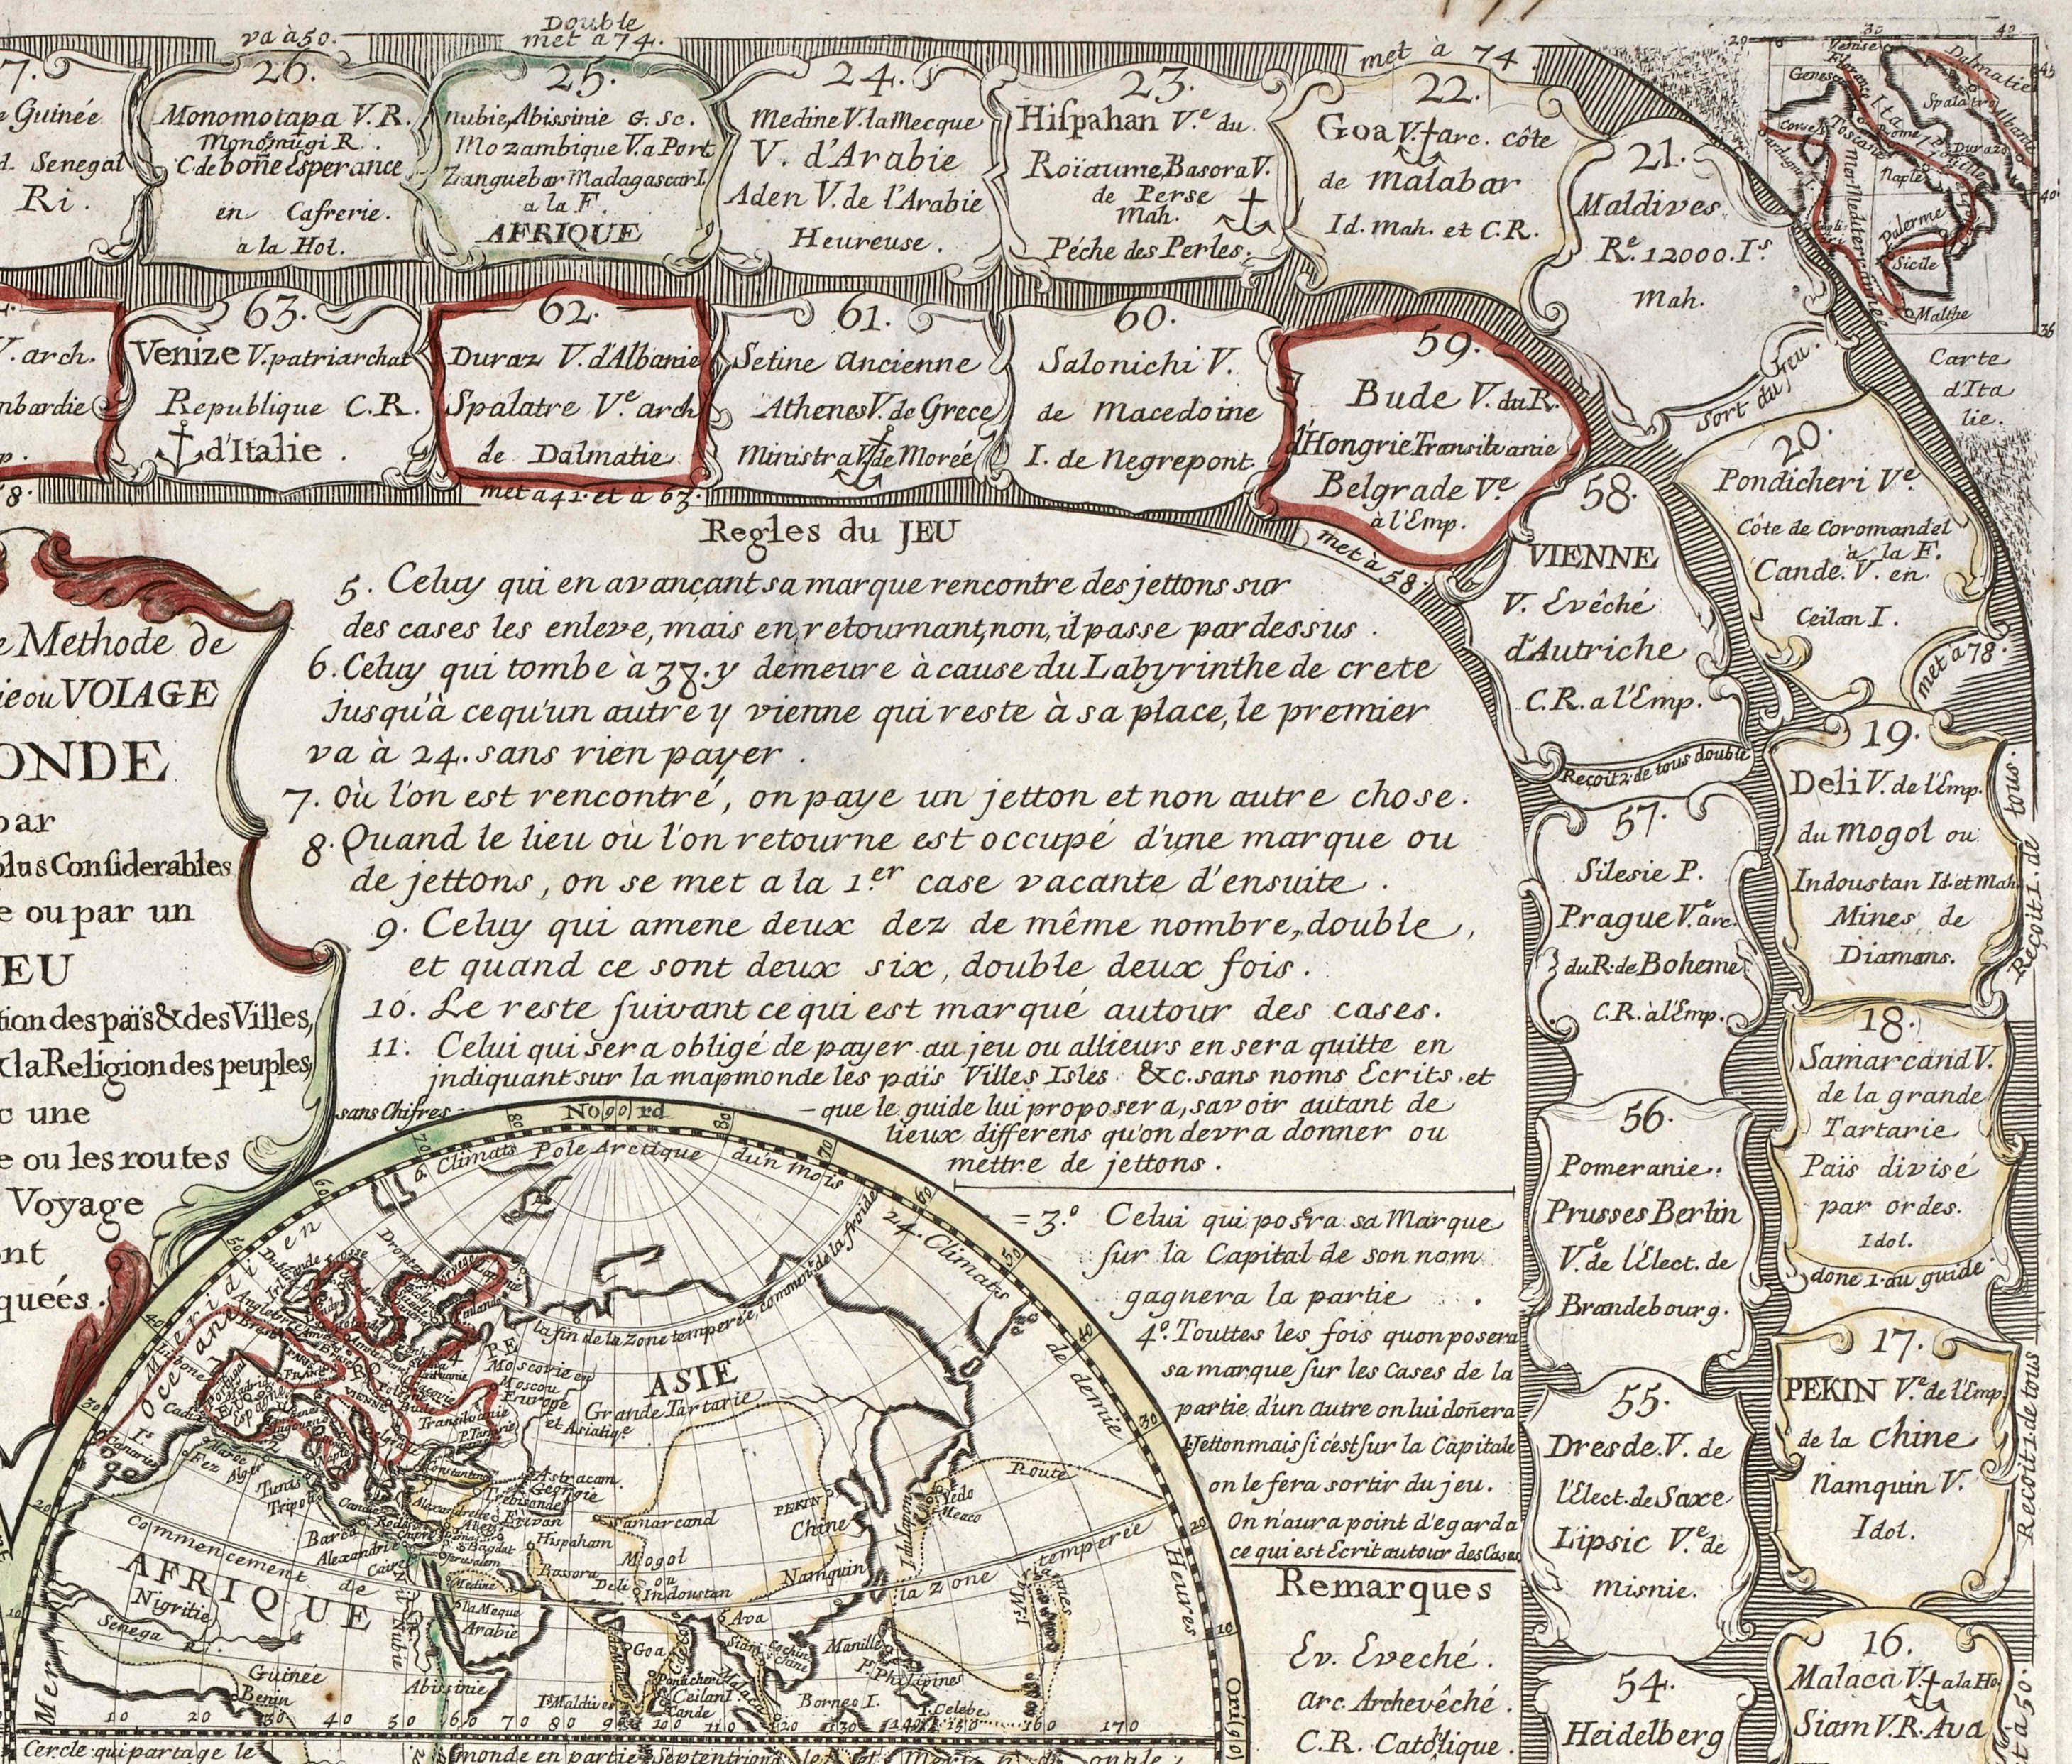 va à 50.
Double
met a 74.
met à 74.
7.
Guinée
Senegal
Ri.
26.
Monomotapa V. R.
Monomugi R.
C. de boñe Esperance
en Cafrerie.
à la Hol.
25.
nubie, Abissinie G. Sc.
Mozambique V. a Port
Zanguebar Madagascar I.
a la F.
AFRIQUE
24.
Medine V. la Mecque
V. d'Arabie
Aden V. de l'Arabie
Heureuse.
23.
Hispahan V.e du
Roïaume, Basora V.
de Perse
Mah.
Péche des Perles.
22.
Goa V. arc. côte
de malabar
Id. Mah. et C.R.
21.
Maldives
R.e 12000. I.s
Mah.
Sort du Jeu.
V. arch.
mbardie
63.
Venize V. patriarchat
Republique C.R.
d'Italie.
62.
Duraz V. d'Albanie
Spalatre V.e arch
de Dalmatie
met a 41. et à 63.
61.
Setine Ancienne
Athenes V. de Grece
Ministra V. de Morée
60.
Salonichi V.
de Macedoine
I. de Negrepont
59.
Bude V. du R.
d'Hongrie Transilvanie
Belgrade V.e
à l'Emp.
met à 58.
58.
VIENNE
V. Evêché
d'Autriche
C.R. a l'Emp.
Reçoit 2. de tous double
20.
Pondicheri V.e
Côte de Coromandel
a la F.
Cande. V. en
Ceilan I.
met a 78.
19.
Deli V. de l'Emp.
du Mogol ou
Indoustan Id. et Mah.
Mines de
Diamans.
Reçoit 1. de tous.
18.
Samarcand V.
de la grande
Tartarie
Païs divisé
par ordes.
Idol.
done 1. au guide.
17.
PEKIN V.e de l'Emp.
de la Chine
Namquin V.
Idol.
Recoit 1. de tous
16.
Malaca V. a la Ho.
Siam V.R. Ava
57.
Silesie P.
Prague V.e arc.
du R. de Boheme
C.R. à l'Emp.
56.
Pomeranie.
Prusses Berlin
V.e de l'Elect. de
Brandebourg.
55.
Dresde. V. de
l'Elect. de Saxe
Lipsic V.e de
misnie.
54.
Heidelberg
Venise
Genes
Florence
Dalmatie
Spalatro
Albanie
Corse I.
Toscane
Rome
Pouille
Durazo
Sardigne I.
Naples
Mer Mediterranée
Palerme
Sicile
Malthe
Carte
d'Ita
lie.
Methode de
ie ou VOIAGE
ONDE
par
plus Considerables
e ou par un
EU
tion des païs & des Villes,
la Religion des peuples,
c une
e ou les routes
Voyage
ont
quées.
Regles du JEU
5. Celuy qui en avançant sa marque rencontre des jettons sur
des cases les enleve, mais en retournant, non, il passe par dessus.
6. Celuy qui tombe à 37. y demeure à cause du Labyrinthe de crete
jusqu'à ce qu'un autre y vienne qui reste à sa place, le premier
va à 24. sans rien payer.
7. Où l'on est rencontré, on paye un jetton et non autre chose.
8. Quand le lieu où l'on retourne est occupé d'une marque ou
de jettons, on se met a la 1.er case vacante d'ensuite.
9. Celuy qui amene deux dez de même nombre, double,
et quand ce sont deux six, double deux fois.
10. Le reste suivant ce qui est marqué autour des cases.
11. Celui qui sera obligé de payer au jeu ou allieurs en sera quitte en
indiquant sur la mapmonde les païs Villes Isles &c. sans noms Ecrits et
sans Chifres - que le guide lui proposera, savoir autant de
lieux differens qu'on devra donner ou
mettre de jettons.
= 3.º Celui qui posera sa Marque
sur la Capital de son nom
gagnera la partie.
4º. Touttes les fois quon posera
sa marque sur les Cases de la
partie d'un autre on lui doñera
1 Jetton mais si c'est sur la Capitale
on le fera sortir du jeu.
On n'aura point d'egard a
ce qui est Ecrit autour des Cases
Remarques
Ev. Eveché.
arc. Archevêché.
C.R. Catolique.
Nord
Climats Pole Arctique du'n mois
24. Climats de demie Heures
la fin de la Zone temperée, comment. de la froide
Meridien
Oceane
Irlande
Ecosse
Dronte
Norvege
Laponie
Finlande
Angleterre
Brest
PARIS
FRANCE
Lisbone
Portugal
Madrid
Cadiz
VIENNE
Bude
Transilvanie
Belgrade
Moscovie en
Moscou
Europe
et Asiatiq.e
ASIE
Grande Tartarie
P. Tartarie
Astracam
Georgie
Trebisande
Erivan
Constantinople
Alexandrette
Candie
Bagdat
Jerusalem
Hispaham
Bassora
Samarcand
Mogol
ou
Indoustan
Deli
PEKIN
Chine
Namquin
I. du Iapon
Yedo
Meaco
Route
la Zone temperée
Is. Canaries
Maroc
Fez
Alger
Tunis
Tripoli
Barca
Alexandrie
Caire
Commencement de
AFRIQUE
Nigritie
Senega R.
Guinée
Benin
Nubie
Abissinie
Medine
la Meque
Arabie
Goa
Ava
Siam
Cochinchine
Malaca
Pondicheri
Ceilan I.
Cande
Is. Maldives
Borneo I.
Manille
Is. Philipines
I. Celebe
Is. Mariannes
Mer
10 20 30 40 50 60 70 80 90 100 110 120 130 140 150 160 170
Cercle qui partage le monde en partie Septentrionale et Meridionale